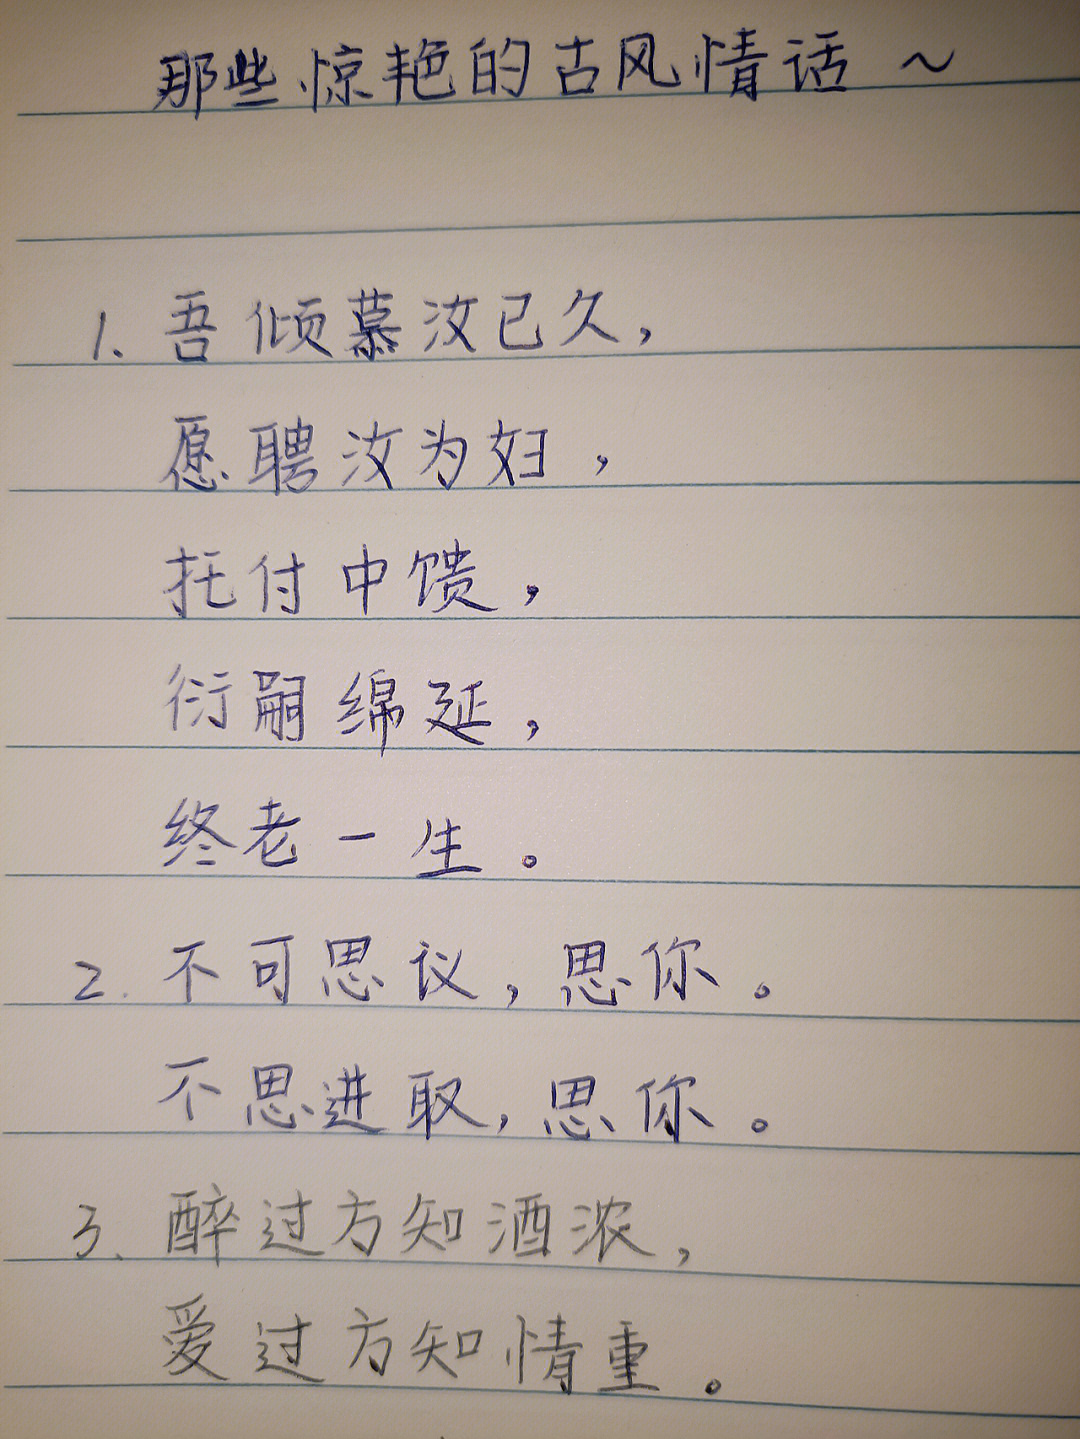 那些惊艳的古风情话～
1. 吾倾慕汝已久，
愿聘汝为妇，
托付中馈，
衍嗣绵延，
终老一生。
2. 不可思议，思你。
不思进取，思你。
3. 醉过方知酒浓，
爱过方知情重。